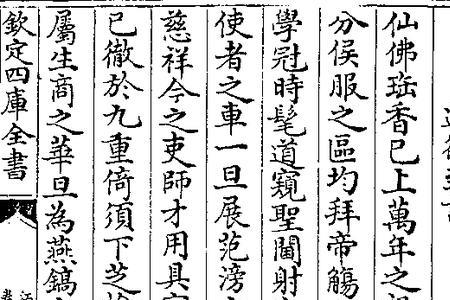 仙佛珤香已上萬年之
分侯服之區均拜帝觴
學冠時髦道窺聖閫射
使者之車一旦展范滂
慈祥今之吏師才用具
已徹於九重倚須下芝
屬生商之華旦為燕鎬
欽定四庫全書